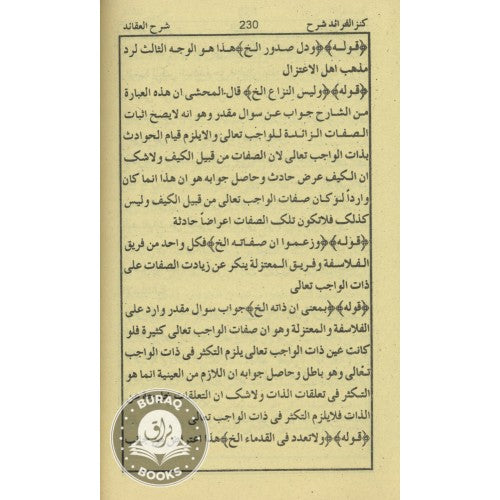 كنز الفرائد شرح 230 شرح العقائد
﴿قوله﴾﴿ودل صدور الخ﴾هذا هو الوجه الثالث لرد
مذهب اهل الاعتزال
﴿قوله﴾﴿وليس النزاع الخ﴾ قال المحشى ان هذه العبارة
من الشارح جواب عن سوال مقدر وهو انه لايصخ اثبات
الصفات الزائدة للواجب تعالىٰ والايلزم قيام الحوادث
بذات الواجب تعالى لان الصفات من قبيل الكيف ولاشك
ان الكيف عرض حادث وحاصل جوابه هو ان هذا انما كان
وارداً لو كان صفات الواجب تعالى من قبيل الكيف وليس
كذلك فلاتكون تلك الصفات اعراضاً حادثة
﴿قوله﴾﴿وزعموا ان صفاته الخ﴾فكل واحد من فريق
الفلاسفة وفريق المعتزلة ينكر عن زيادت الصفات على
ذات الواجب تعالى
﴿قوله﴾﴿بمعنى ان ذاته الخ﴾جواب سوال مقدر وارد على
الفلاسفة والمعتزلة وهو ان صفات الواجب تعالى كثيرة فلو
كانت عين ذات الواجب تعالى يلزم التكثر فى ذات الواجب
تعالى وهو باطل وحاصل جوابه ان اللازم من العينية انما هو
التكثر فى تعلقات الذات ولاشك ان التعلقات
الذات فلايلزم التكثر فى ذات الواجب تعالى
﴿قوله﴾﴿ولاتعدد فى القدماء الخ﴾هذا
BURAQ
براق
BOOKS